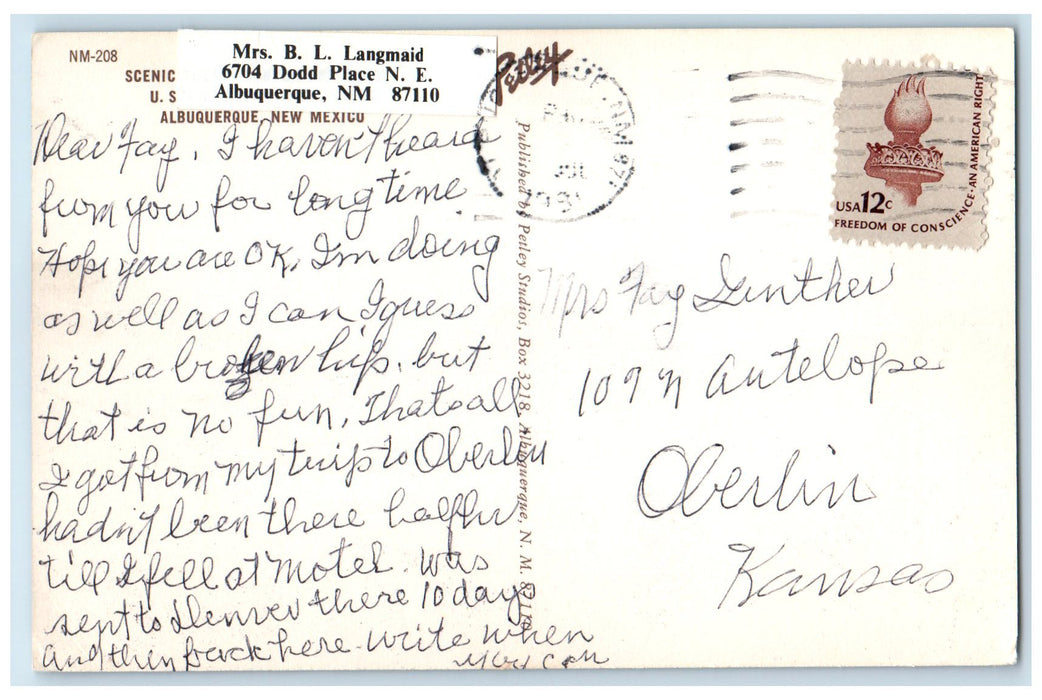 NM-208
SCENIC
U. S
ALBUQUERQUE, NEW MEXICO
Mrs. B. L. Langmaid
6704 Dodd Place N. E.
Albuquerque, NM 87110
Petley
JUL
1981
USA 12c
FREEDOM OF CONSCIENCE-AN AMERICAN RIGHT
Dear Fay, I haven't heard
from you for long time
Hope you are OK, I'm doing
as well as I can I guess
with a broken hip, but
that is no fun, Thats all
I got from my trip to Oberlin
hadn't been there half hr
till I fell at Motel. was
sent to Denver there 10 days
and then back here. write when
you can
Published by Petley Studios, Box 3218, Albuquerque, N. M. 87110
Mrs Fay Ginther
109 N Antelope
Oberlin
Kansas